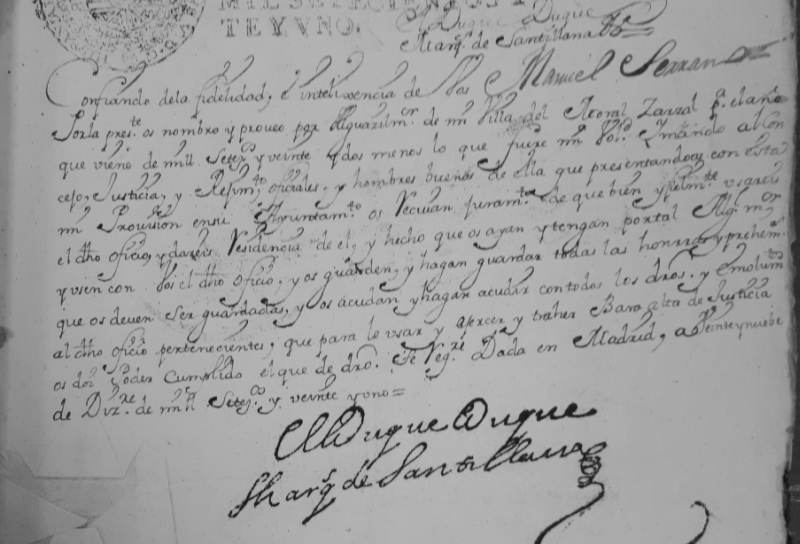 MIL SETECIENTOS Y
TEYVNO.
El Duque Duque
Marq.s de Santillana
Confiando dela fidelidad, é intelixencia de Vos Manuel Serrano
Porla pres.te os nombro y proveo por Alguazilm.or de mi Villa del Moral Zarzal p.a el año
que viene de mill, Setez.s y veinte y dos menos lo que fuere mi Vol.d Y mando al Con
cejo, Justicia, y Rejim.to oficiales, y hombres buenos de ella que presentandoos con esta
mi Provision ensu Ayuntam.to os Recivan juram.to de que bien y fielm.te usareis
el dho oficio, y dareis Residencia de el, y hecho que os ayan y tengan portal Alg.l m.or
y usen con Vos el dho oficio, y os guarden, y hagan guardar todas las honrras, y prehem.s
que os deven ser guardadas, y os acudan y hagan acudir contodos los dros. y emolum.tos
al dho oficio pertenecientes, que para lo usar y exercer y traher Bara alta de Justicia
os doi Poder Cumplido el que de dro. Se Reg.re Dada en Madrid, a Veinte y nuebe
de Diz.re de mill Setez.s y veinte y uno =
El Duque Duque
Marq.s de Santillana